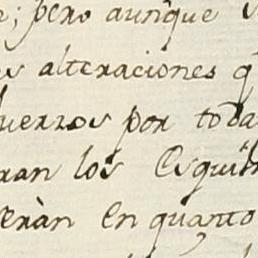 ; pero aunque
alteraciones q
uerzos por toda
ran los Esqui
eràn en quanto